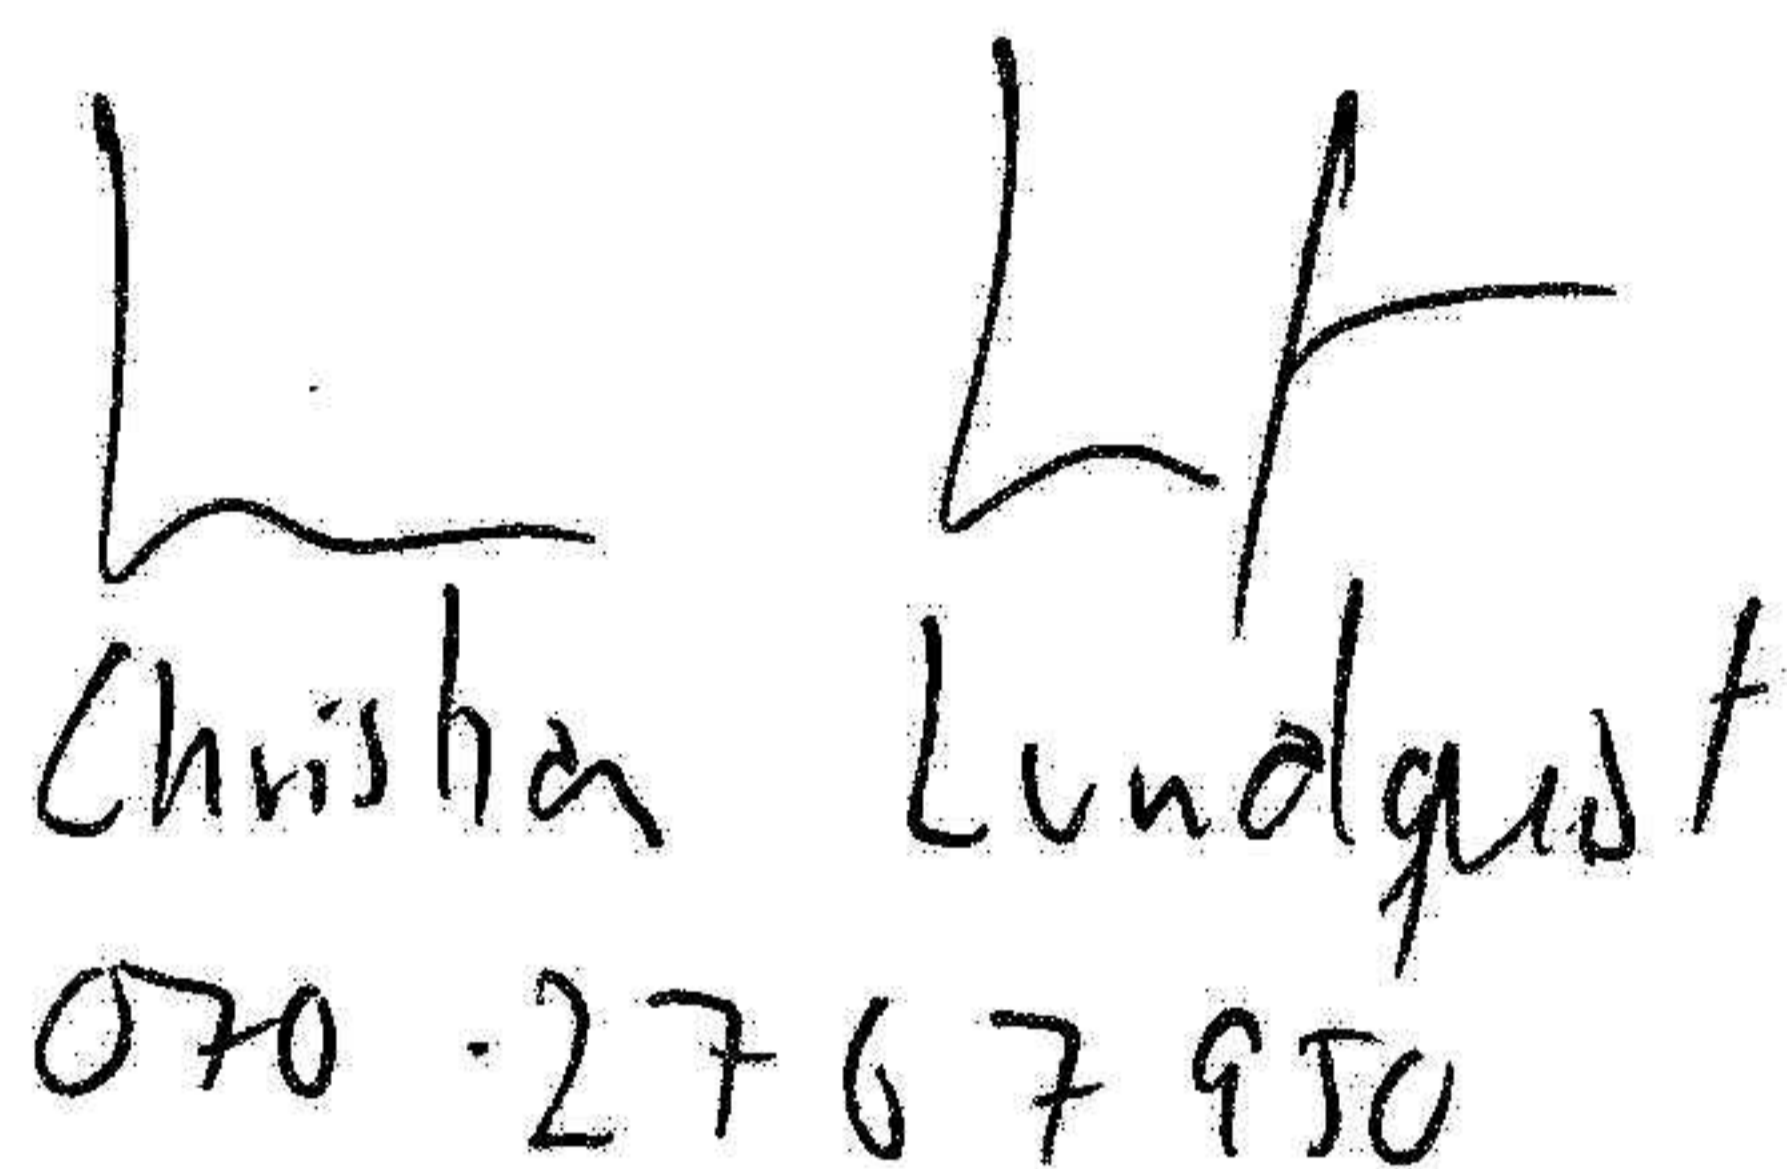 Christian Lundquist
070 - 27 67 950